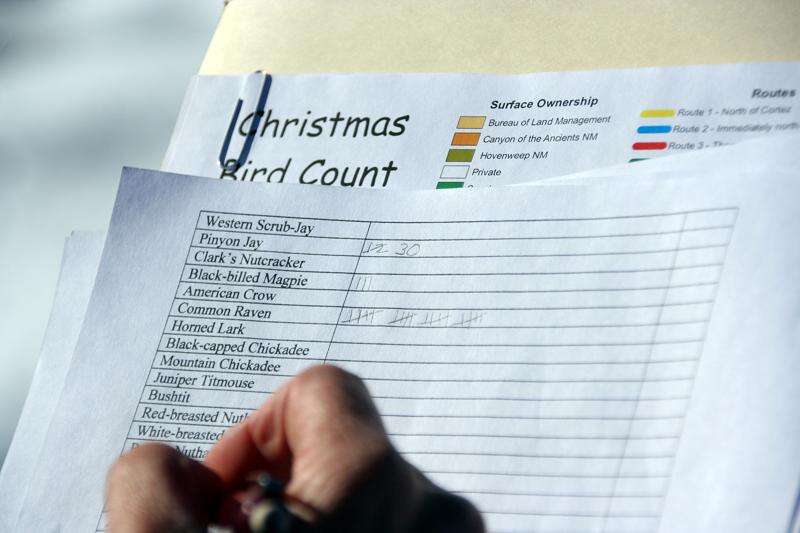 Christmas
Bird Count
Surface Ownership
Bureau of Land Management
Canyon of the Ancients NM
Hovenweep NM
Private
Routes
Route 1 - North of Cortez
Route 2 - Immediately north
Route 3 -
Western Scrub-Jay
Pinyon Jay 12 30
Clark's Nutcracker
Black-billed Magpie |||
American Crow
Common Raven
Horned Lark
Black-capped Chickadee
Mountain Chickadee
Juniper Titmouse
Bushtit
Red-breasted Nuth
White-breasted